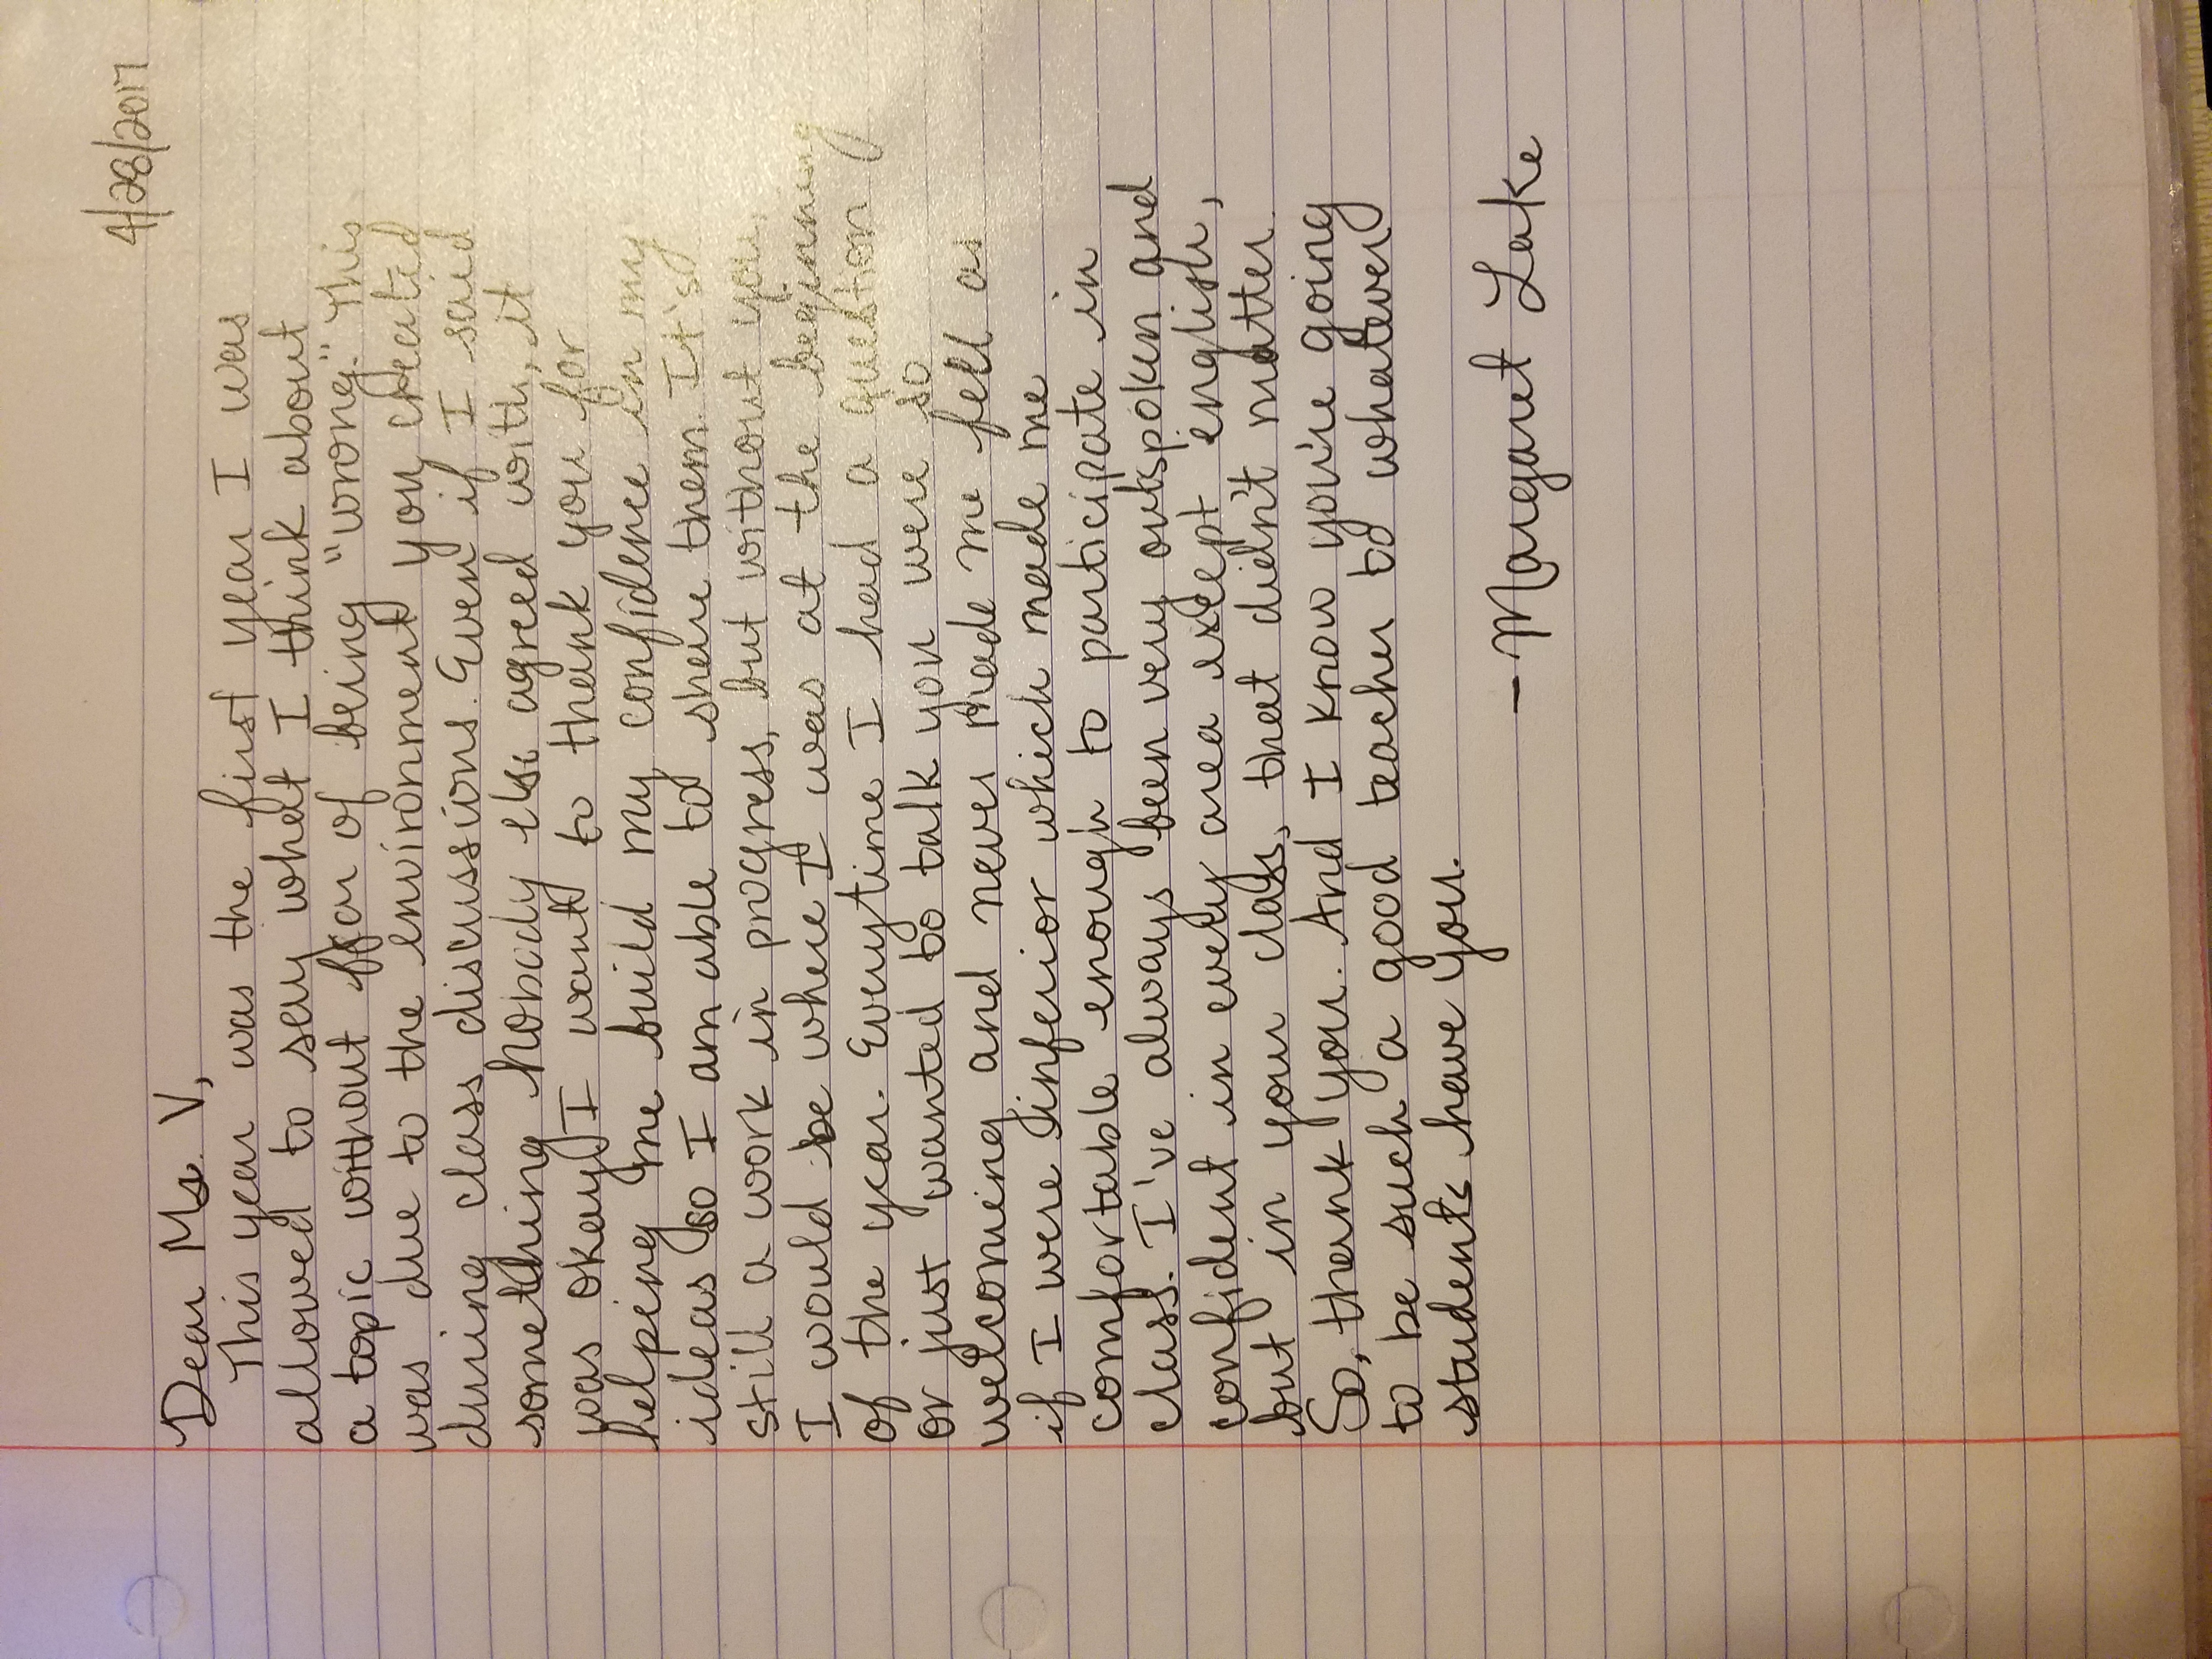 4/28/2017
Dear Ms. V,
This year was the first year I was
allowed to say what I think about
a topic without fear of being "wrong." This
was due to the environment you created
during class discussions. Even if I said
something nobody else agreed with, it
was okay. I want to thank you for
helping me build my confidence in my
ideas so I am able to share them. It's
still a work in progress, but without you,
I would be where I was at the beginning
of the year. Everytime I had a question
or just wanted to talk you were so
welcoming and never made me fell as
if I were inferior which made me
comfortable enough to participate in
class. I've always been very outspoken and
confident in every area except english,
but in your class, that didn't matter.
So, thank you. And I know you're going
to be such a good teacher to whatever
students have you.
- Margaret Lake